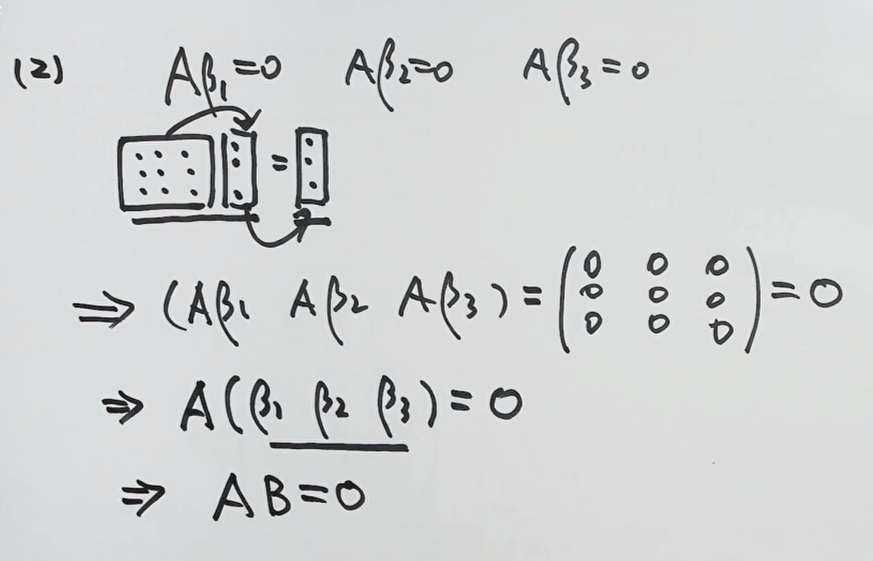 (2) Aβ₁=0 Aβ₂=0 Aβ₃=0
=
⇒ (Aβ₁ Aβ₂ Aβ₃) = (0 0 0
0 0 0
0 0 0) = 0
⇒ A(β₁ β₂ β₃) = 0
⇒ AB=0